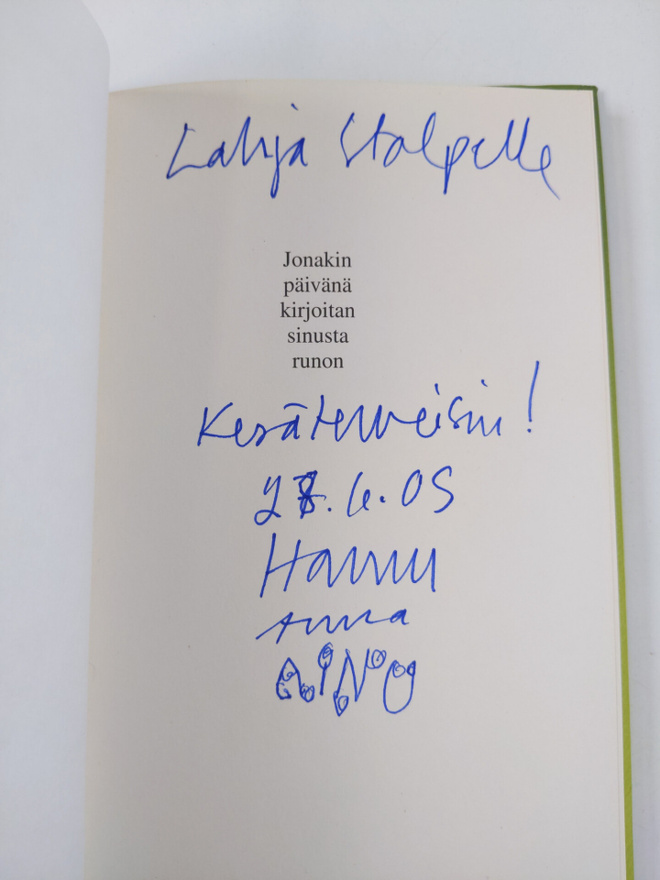 Lahja Stolpelle
Jonakin
päivänä
kirjoitan
sinusta
runon
Kesäterveisin!
28.6.05
Hannu
Anna
AINO